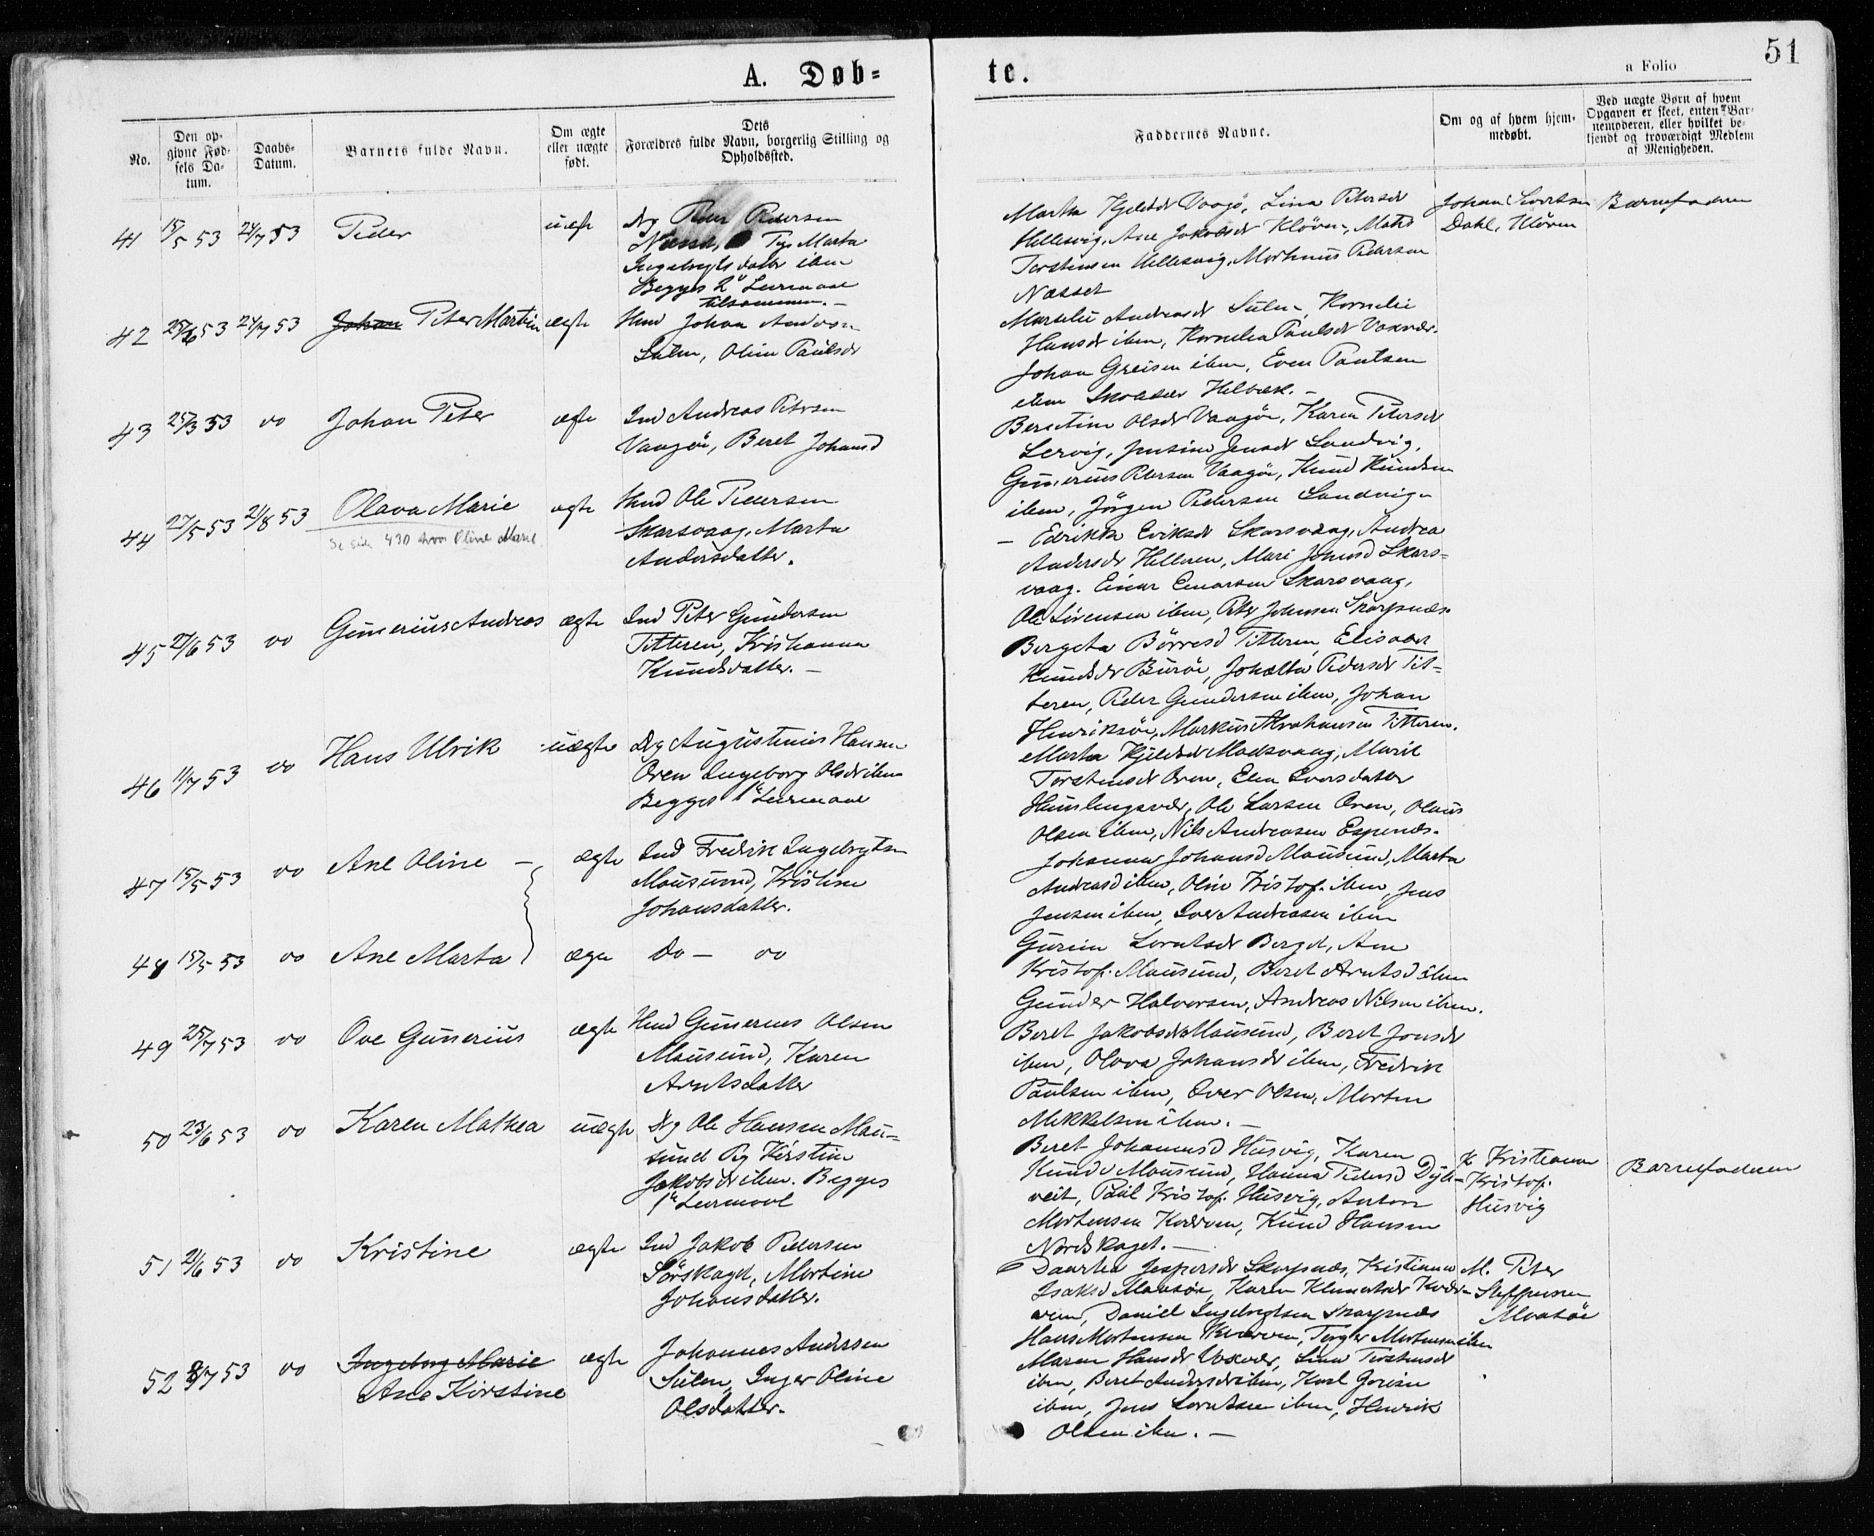 51
A. Døb=
te.
a Folio
No.
Den op-
givne Fød-
sels Da-
tum.
Daabs-
Datum.
Barnets fulde Navn.
Om ægte
eller uægte
født.
Dets
Forældres fulde Navn, borgerlig Stilling og
Opholdssted.
Faddernes Navne.
Om og af hvem hjem-
medøbt.
Ved uægte Børn af hvem
Opgaven er skeet, enten Bar-
nemoderen, eller hvilket be-
kjendt og troværdigt Medlem
af Menigheden.
41 15/5 53 24/7 53 Peder uægte Ng Peder Pedersen
Pige Marta
Ingebrigtsdatter ibm
Begges 2det Leiermaal
tilsammen. –
Marta Kjeldsdr Vaagø, Lina Petersdr
Hellesvig, Ane Jakobsdr Kløven, Mats
Torstensen Hellesvig, Morthinus Pedersen
Næsset
Johan Sivertsen
Dahl, Kløven
Barnefaderen
42 25/6 53 24/7 53 Johan Peter Martin ægte Hmd Johan Andersen
Sulen, Oline Paulsdr
Marselie Andreasdr Sulen, Kornelie
Hansdr ibm, Kornelia Paulsdr Voxvær.
Johan Greisen ibm, Even Paulsen
ibm Helbæk. –
43 25/3 53 do Johan Peter ægte Ind Andreas Petersen
Vaagøe, Beret Johansd
Beretine Olsdr Vaagøe, Karen Petersdr
Lervig, Jensine Jensdr Sandvig,
Gunerius Petersen Vaagøe, Knud Knudsen
ibm, Jörgen Pedersen Sandvig –
44 27/5 53 21/8 53 Olava Marie ægte Hmd Ole Pedersen
Se side 430 hvor Oline Marie.
Skarsvaag, Marta
Andersdatter.
– Edrikke Eriksdr Skarsvaag, Andrea
Andersdr Helleren, Mari Jonsd Skars=
vaag. Einar Einarsen Skarsvaag,
Ole Sörensen ibm, Peter Johnsen Skarpnæs.
45 27/6 53 do Gunerius Andreas ægte Ind Peter Gundersen
Titteren, Kristianna
Knudsdatter. –
Bergeta Börresd Titteren, Elisabet
Knudsdr Buröe, Johætta Pedersdr Tit=
teren, Peder Gundersen ibm, Johan
Henriksöe, Markus Abrahamsen Titteren.
46 11/7 53 do Hans Ulrik uægte Ng Augustinus Hansen
Oren Ingeborg Olsdr ibm
Begges 1ste Leiermaal
Marta Kjeldsdr Madsvaag, Marie
Torstensdr Oren, Elen Iversdatter
Humlingsvær, Ole Larsen Oren, Olaus
Olsen ibm, Nils Andreasen Espenæs.
47 15/5 53 do Ane Oline – ægte Ind Fredrik Ingebrigtsen
Mausund, Kristine
Johansdatter.
Johanna Johansd Mausund, Marta
Andreasd ibm, Oline Kristof. ibm, Jens
Jensen ibm, Iver Andreasen ibm
48 15/5 53 do Ane Marta ægte Do – do
Gurine Lorntsdr Berget, Ane
Kristof. Mausund, Beret Arntsd ibm
Gunder Halvorsen, Andreas Nilsen ibm.
49 25/7 53 do Ove Gunerius ægte Hmd Gunerius Olsen
Mausund, Karen
Arntsdatter
Beret Jakobsdr Mausund, Beret Jonsdr
ibm, Olova Johansdr ibm, Fredrik
Paulsen ibm, Iver Olsen, Morten
Mekkelsen ibm. –
50 23/6 53 do Karen Mathea uægte Ng Ole Hansen Mau=
sund Pg Kirstine
Jakobsdr ibm. Begges
1ste Leiermaal
Beret Johannesd Husvig, Karen
Knudsdr Mausund, Hanna Pedersd Dyb=
veit, Paul Kristof. Husvig, Anton
Mortensen Kværven, Knud Hansen
Nordskaget. –
Kristianna
Kristof.
Husvig
Barnefaderen
51 21/6 53 do Kristine ægte Ind Jakob Pedersen
Sörskaget, Mortine
Johansdatter.
Daartea Jespersdr Skarpnæs, Kristianna
Isaksd Maasöe, Karen Klemetsdr Kvær=
ven, Daniel Ingebrigtsen Skarpnæs
Hans Mortensen Kværven, Torger Mortensen ibm
M. Peter
Steffensen
Maasöe
52 8/7 53 do Ingeborg Marie ægte Johannes Andersen
Ane Kirstine
Sulen, Inger Oline
Olsdatter.
Maren Hansdr Voxvær, Lina Torstensdr
ibm, Beret Andersdr ibm, Karl Greisen
ibm, Jens Lorntsen ibm, Henrik
Olsen ibm. –